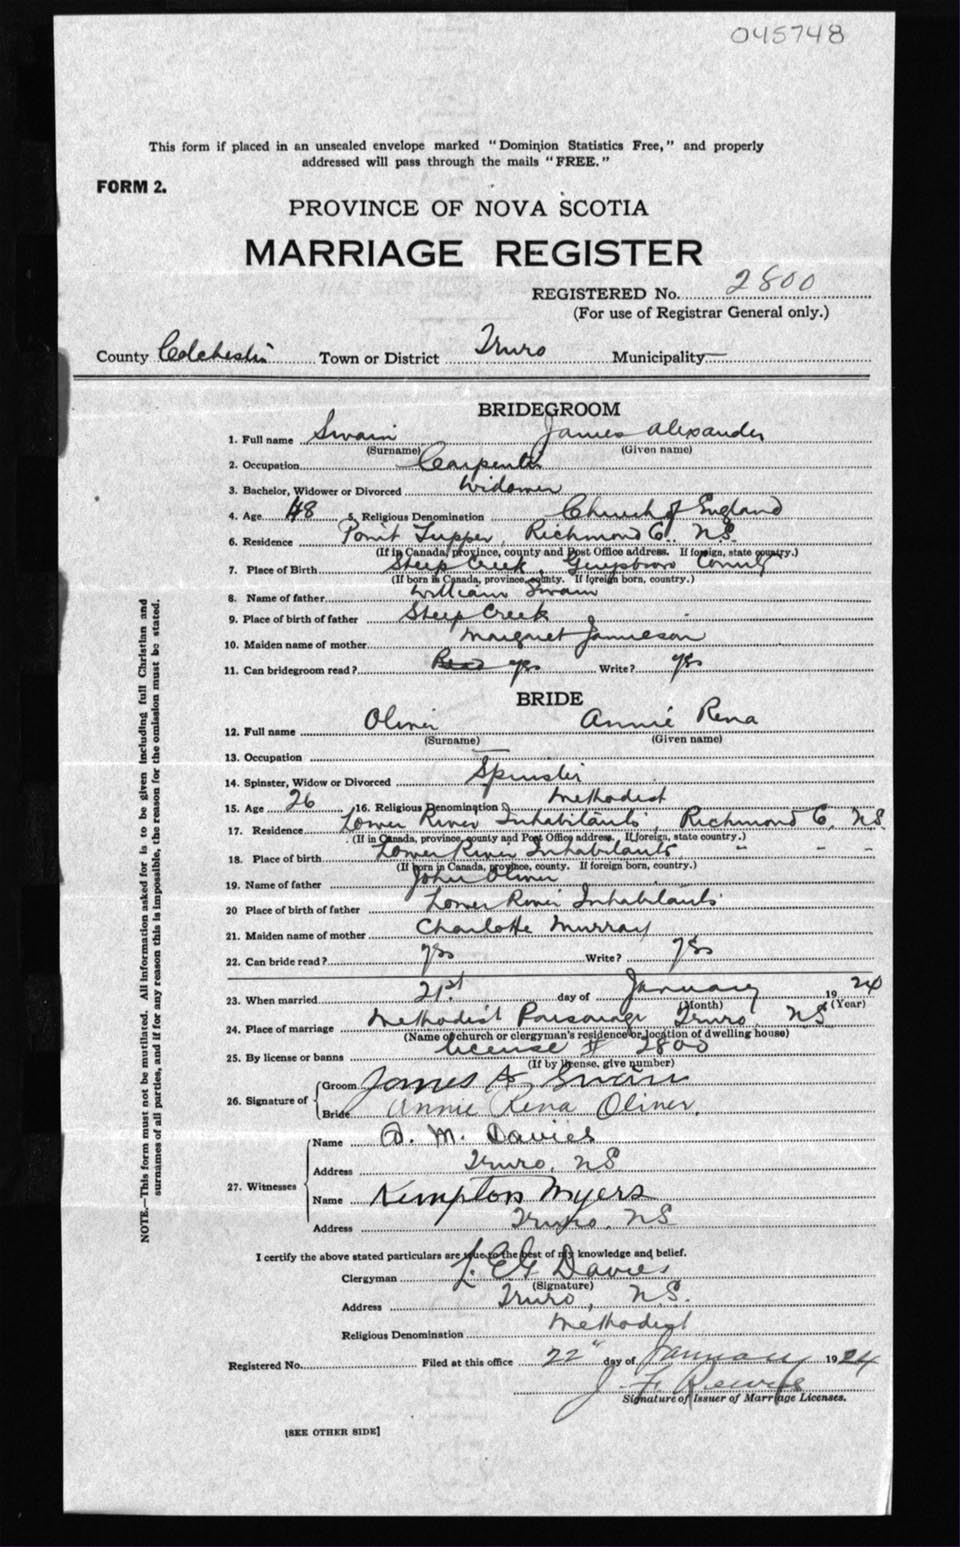 045748
This form if placed in an unsealed envelope marked "Dominion Statistics Free," and properly
addressed will pass through the mails "FREE."
FORM 2.
PROVINCE OF NOVA SCOTIA
MARRIAGE REGISTER
REGISTERED No. 2800
(For use of Registrar General only.)
County Colchester Town or District Truro Municipality —
BRIDEGROOM
1. Full name Swain James Alexander
(Surname) (Given name)
2. Occupation Carpenter
3. Bachelor, Widower or Divorced Widower
4. Age 48 5. Religious Denomination Church of England
6. Residence Point Tupper, Richmond Co. N.S.
(If in Canada, province, county and Post Office address. If foreign, state country.)
7. Place of Birth Steep Creek, Guysboro County
(If born in Canada, province, county. If foreign born, country.)
8. Name of father William Swain
9. Place of birth of father Steep Creek
10. Maiden name of mother Margret Jamieson
11. Can bridegroom read? yes Write? yes
BRIDE
12. Full name Oliver Annie Rena
(Surname) (Given name)
13. Occupation —
14. Spinster, Widow or Divorced Spinster
15. Age 26 16. Religious Denomination Methodist
17. Residence Lower River Inhabitants, Richmond Co, N.S.
(If in Canada, province, county and Post Office address. If foreign, state country.)
18. Place of birth Lower River Inhabitants " " "
(If born in Canada, province, county. If foreign born, country.)
19. Name of father John Oliver
20 Place of birth of father Lower River Inhabitants
21. Maiden name of mother Charlotte Murray
22. Can bride read? yes Write? yes
23. When married 21st day of January 1924
(Month) (Year)
24. Place of marriage Methodist Parsonage Truro NS
(Name of church or clergyman's residence or location of dwelling house)
25. By license or banns license # 2800
(If by license, give number)
26. Signature of
Groom James A Swain
Bride Annie Rena Oliver.
27. Witnesses
Name D. M. Davies
Address Truro, NS
Name Kempton Myers
Address Truro, NS
I certify the above stated particulars are true to the best of my knowledge and belief.
Clergyman L. E. G. Davies
(Signature)
Address Truro, N.S.
Religious Denomination Methodist
Registered No. Filed at this office 22" day of January 1924
J. F.
Signature of Issuer of Marriage Licenses.
[SEE OTHER SIDE]
NOTE.—This form must not be mutilated. All information asked for is to be given including full Christian and
surnames of all parties, and if for any reason this is impossible, the reason for the omission must be stated.